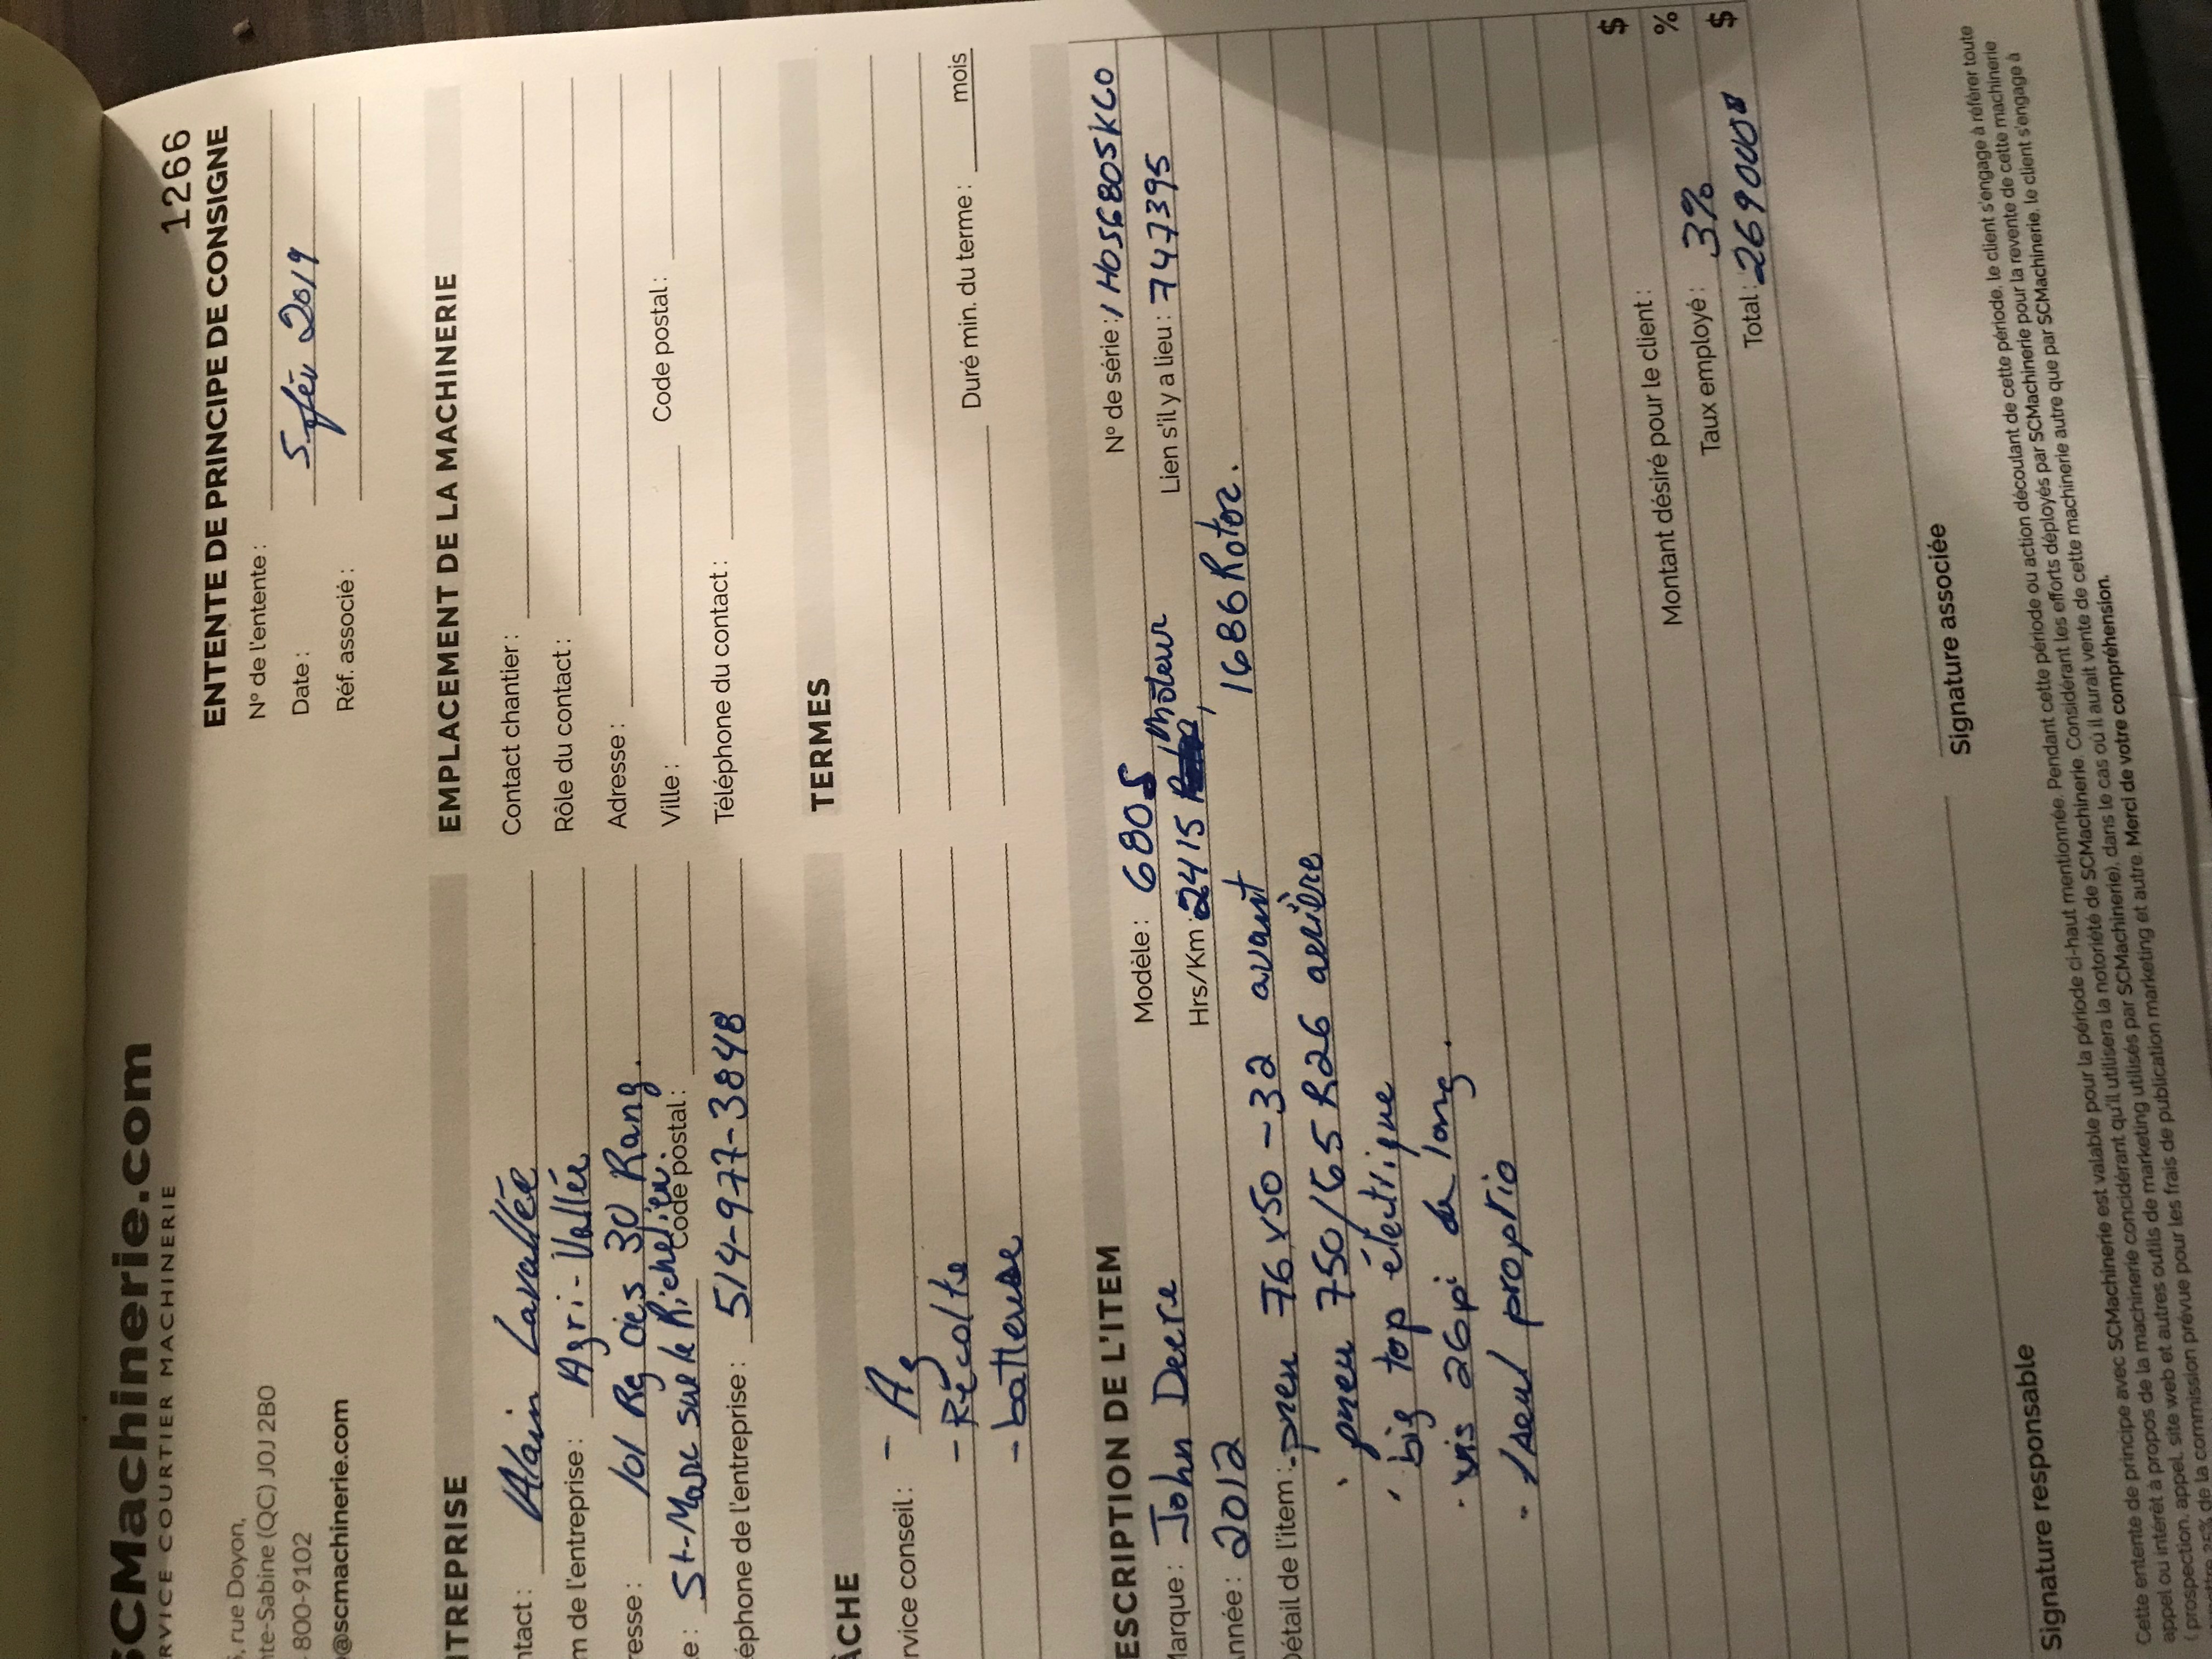 SCMachinerie.com
RVICE COURTIER MACHINERIE
, rue Doyon,
te-Sabine (QC) J0J 2B0
800-9102
@scmachinerie.com
1266
ENTENTE DE PRINCIPE DE CONSIGNE
N° de l'entente :
Date : 5 fév 2019
Réf. associé :
TREPRISE
ntact : Alain Lavallée
m de l'entreprise : Agri-Vallée
resse : 101 Rg des 30 Rang.
e : St-Marc sur le Richelieu. Code postal :
éphone de l'entreprise : 514-977-3848
EMPLACEMENT DE LA MACHINERIE
Contact chantier :
Rôle du contact :
Adresse :
Ville : Code postal :
Téléphone du contact :
ÂCHE
rvice conseil : - Ag
- Récolte
- batteuse
TERMES
Duré min. du terme : mois
ESCRIPTION DE L'ITEM
Marque : John Deere Modèle : 680S N° de série : 1H0S680SKC0
nnée : 2012 Hrs/Km 2415 moteur, Lien s'il y a lieu : 747395
Détail de l'item : - pneu 76x50-32 avant 1686 Rotor.
pneu 750/65R26 arière
big top électrique
vis 26pi de long.
- seul proprio
$
Montant désiré pour le client : %
Taux employé : 3% $
Total : 269000$
Signature responsable
Signature associée
Cette entente de principe avec SCMachinerie est valable pour la période ci-haut mentionnée. Pendant cette période ou action découlant de cette période, le client s'engage à référer toute
appel ou intérêt à propos de la machinerie concidérant qu'il utilisera la notoriété de SCMachinerie. Considérant les efforts déployés par SCMachinerie pour la revente de cette machinerie
( prospection, appel, site web et autres outils de marketing utilisés par SCMachinerie), dans le cas où il aurait vente de cette machinerie autre que par SCMachinerie, le client s'engage à
25% de la commission prévue pour les frais de publication marketing et autre. Merci de votre compréhension.